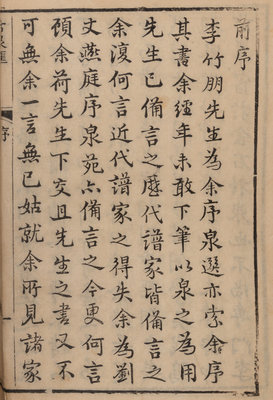 前序
李竹朋先生為余序泉選亦索余序
其書余經年未敢下筆以泉之為用
先生已備言之歷代譜家皆備言之
余復何言近代譜家之得失余為劉
丈燕庭序泉苑亦備言之今更何言
頋余荷先生下交且先生之書又不
可無余一言無已姑就余所見諸家
序